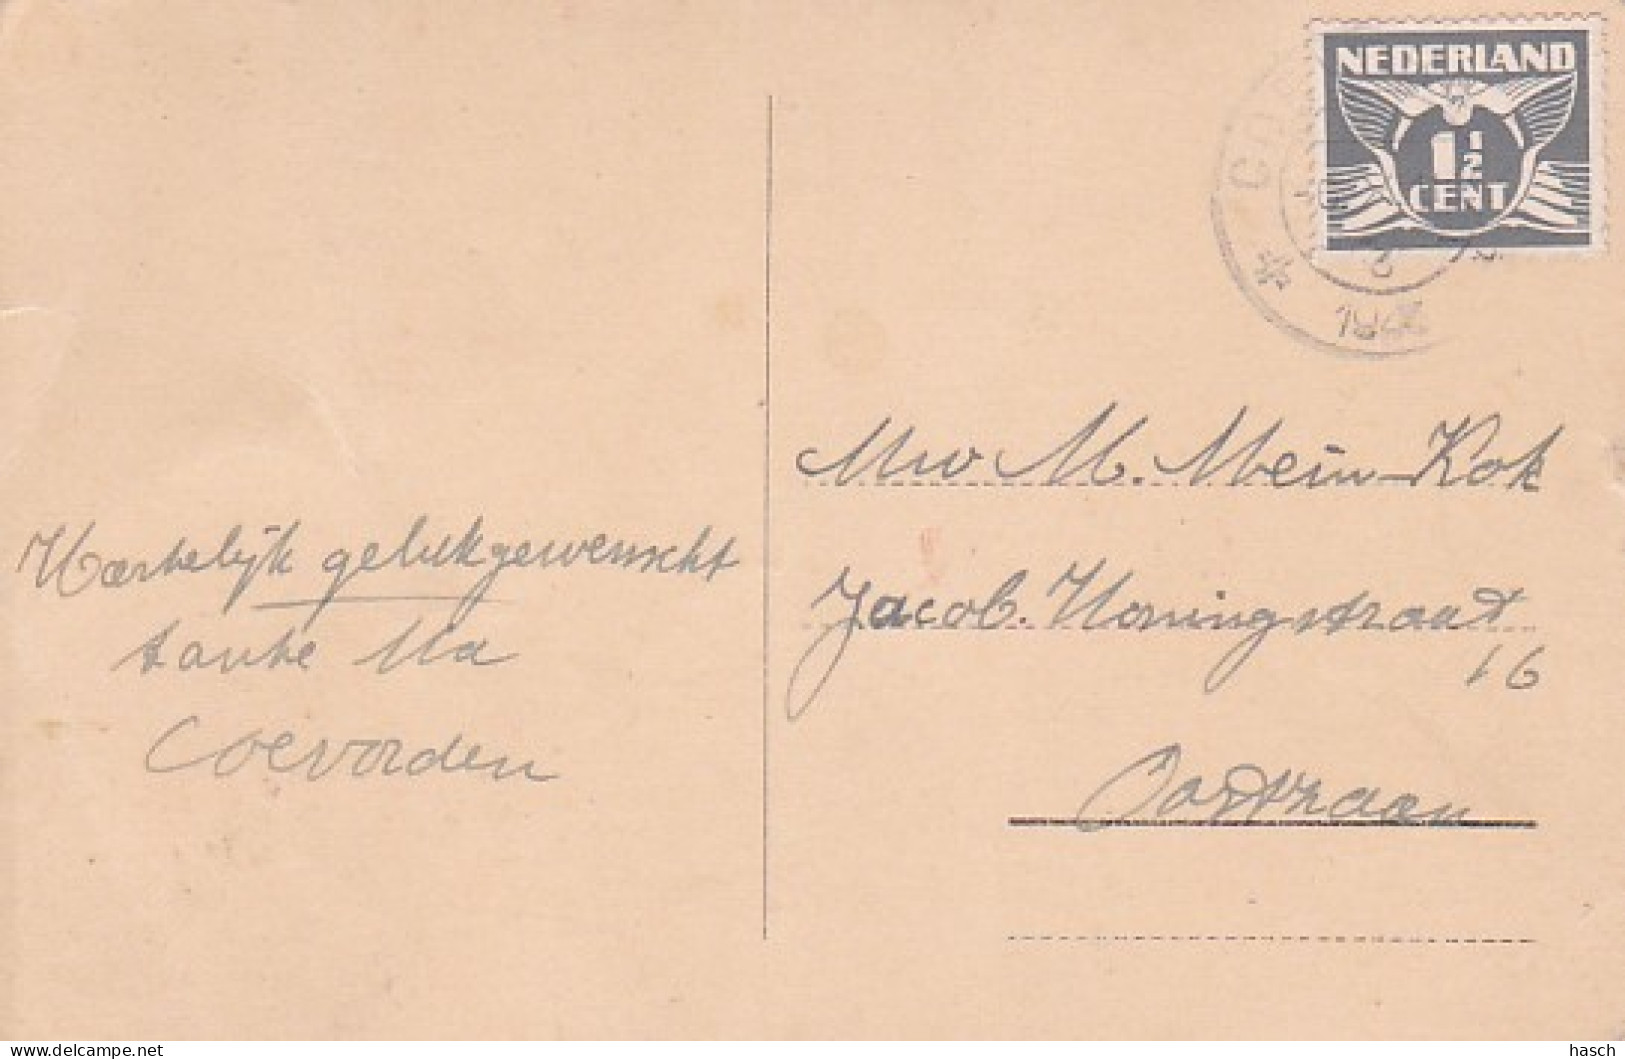 NEDERLAND
1 1/2
CENT
Hartelijk gelukgewenscht
tante Ma
Coevorden
Mw M. Mein-Kok
Jacob. Koningstraat
16
Oostzaan
Delcampe.net
hasch